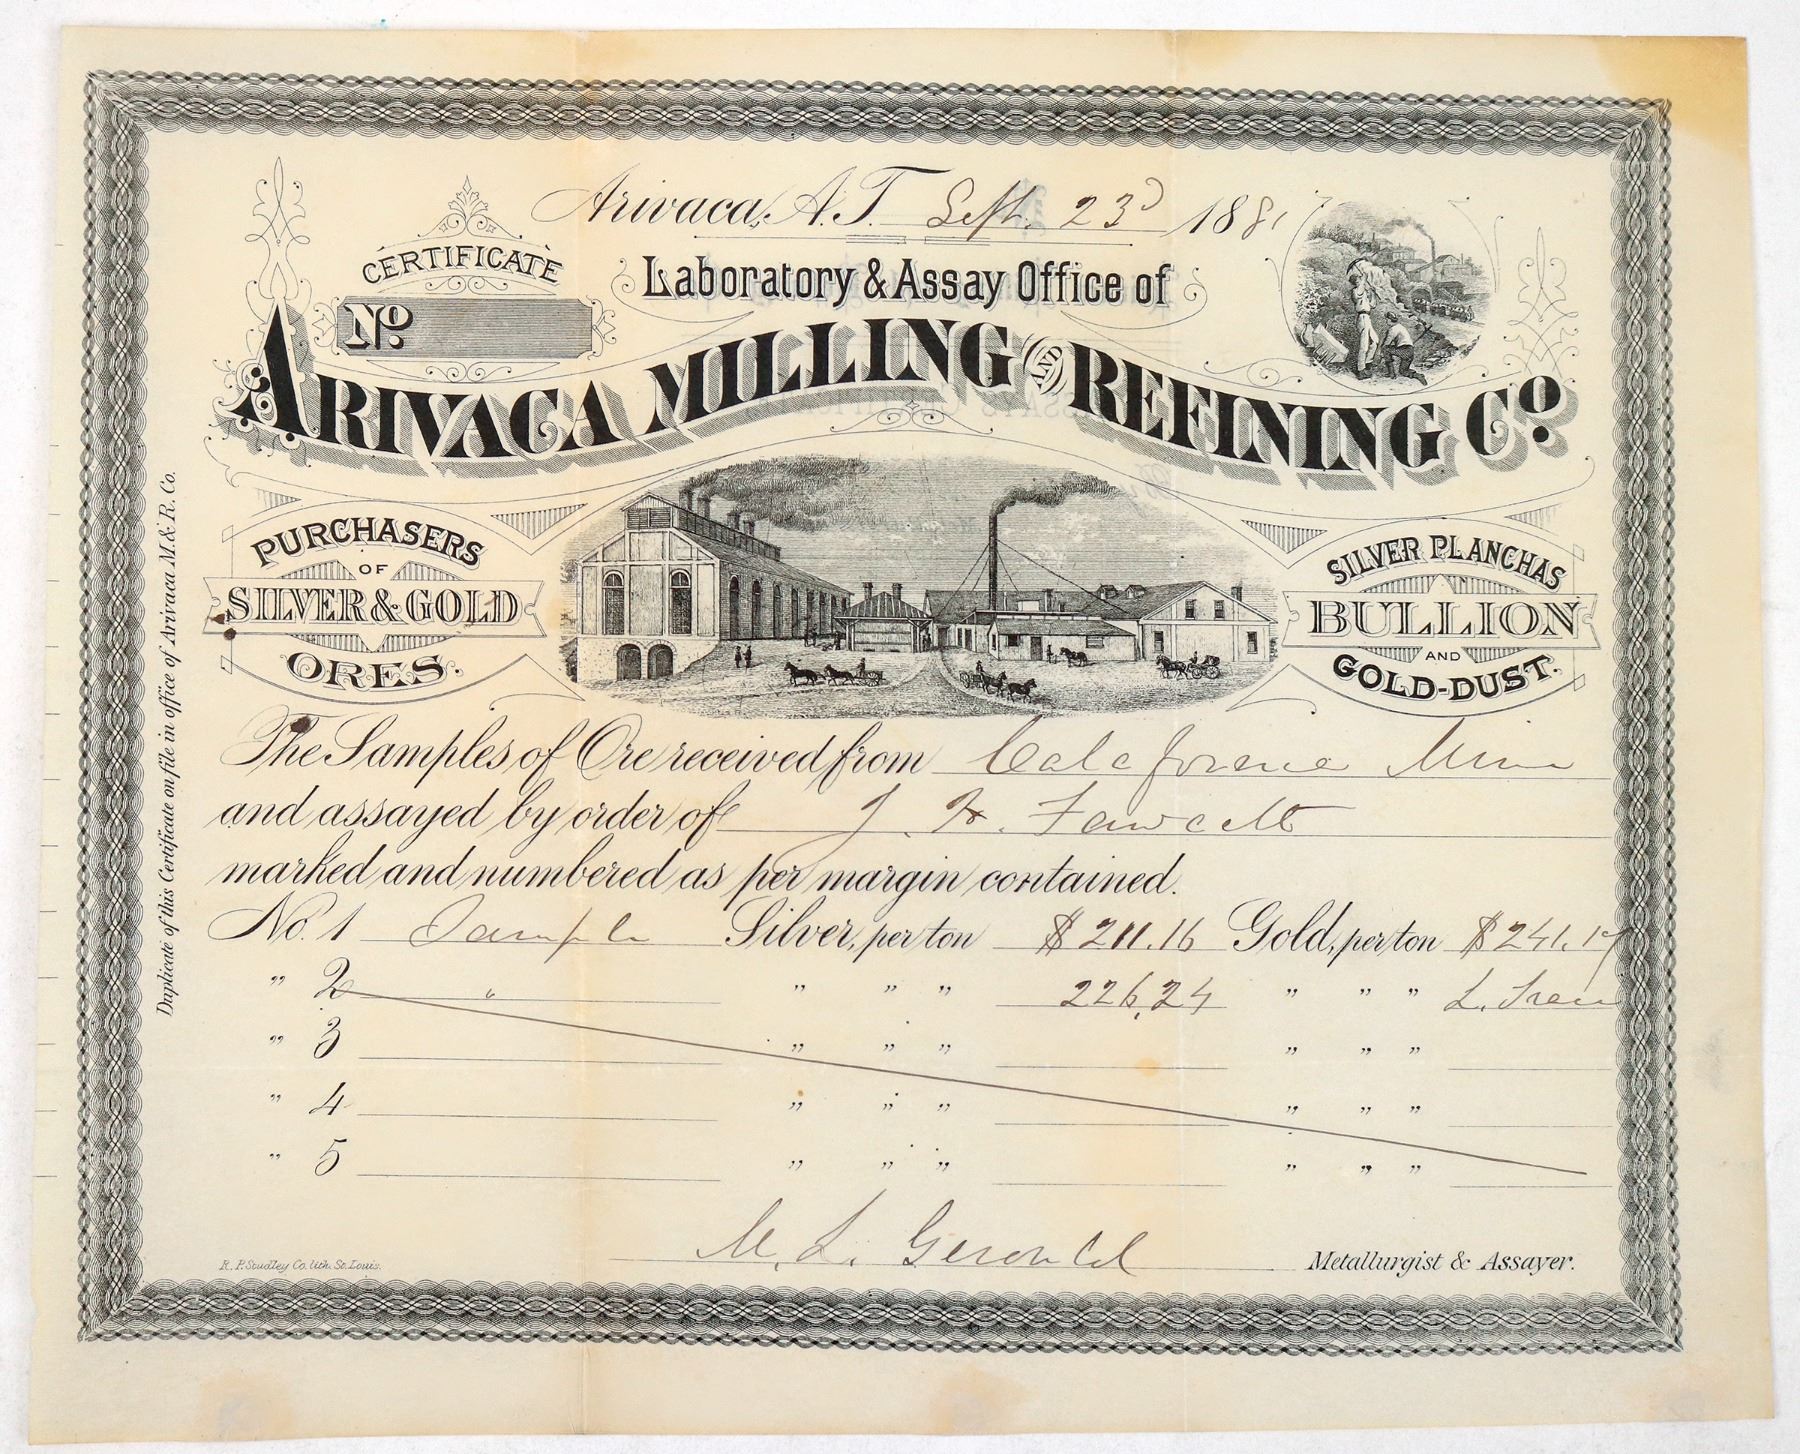 Arivaca, A.T. Sept. 23d 1881
CERTIFICATE
No
Laboratory & Assay Office of
ARIVACA MILLING AND REFINING Co.
PURCHASERS
OF
SILVER & GOLD
ORES.
SILVER PLANCHAS
BULLION
AND
GOLD-DUST.
Duplicate of this Certificate on file in office of Arivaca M. & R. Co.
The Samples of Ore received from California Mine
and assayed by order of J. H. Fawcett
marked and numbered as per margin contained.
No. 1 Sample Silver, per ton $211.16 Gold, per ton $241.17
" 2 " " " " 226.24 " " "
" 3 " " " " " "
" 4 " " " " " "
" 5 " " " " " "
M. L.
Metallurgist & Assayer.
R. P. Studley Co. lith. St. Louis.